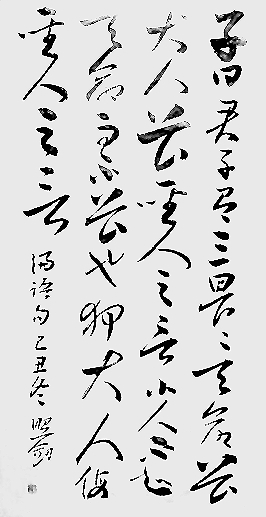 子曰君子有三畏〻天命畏
大人畏聖人之言小人不知
天命而不畏也狎大人侮
聖人之言
論語句己丑冬